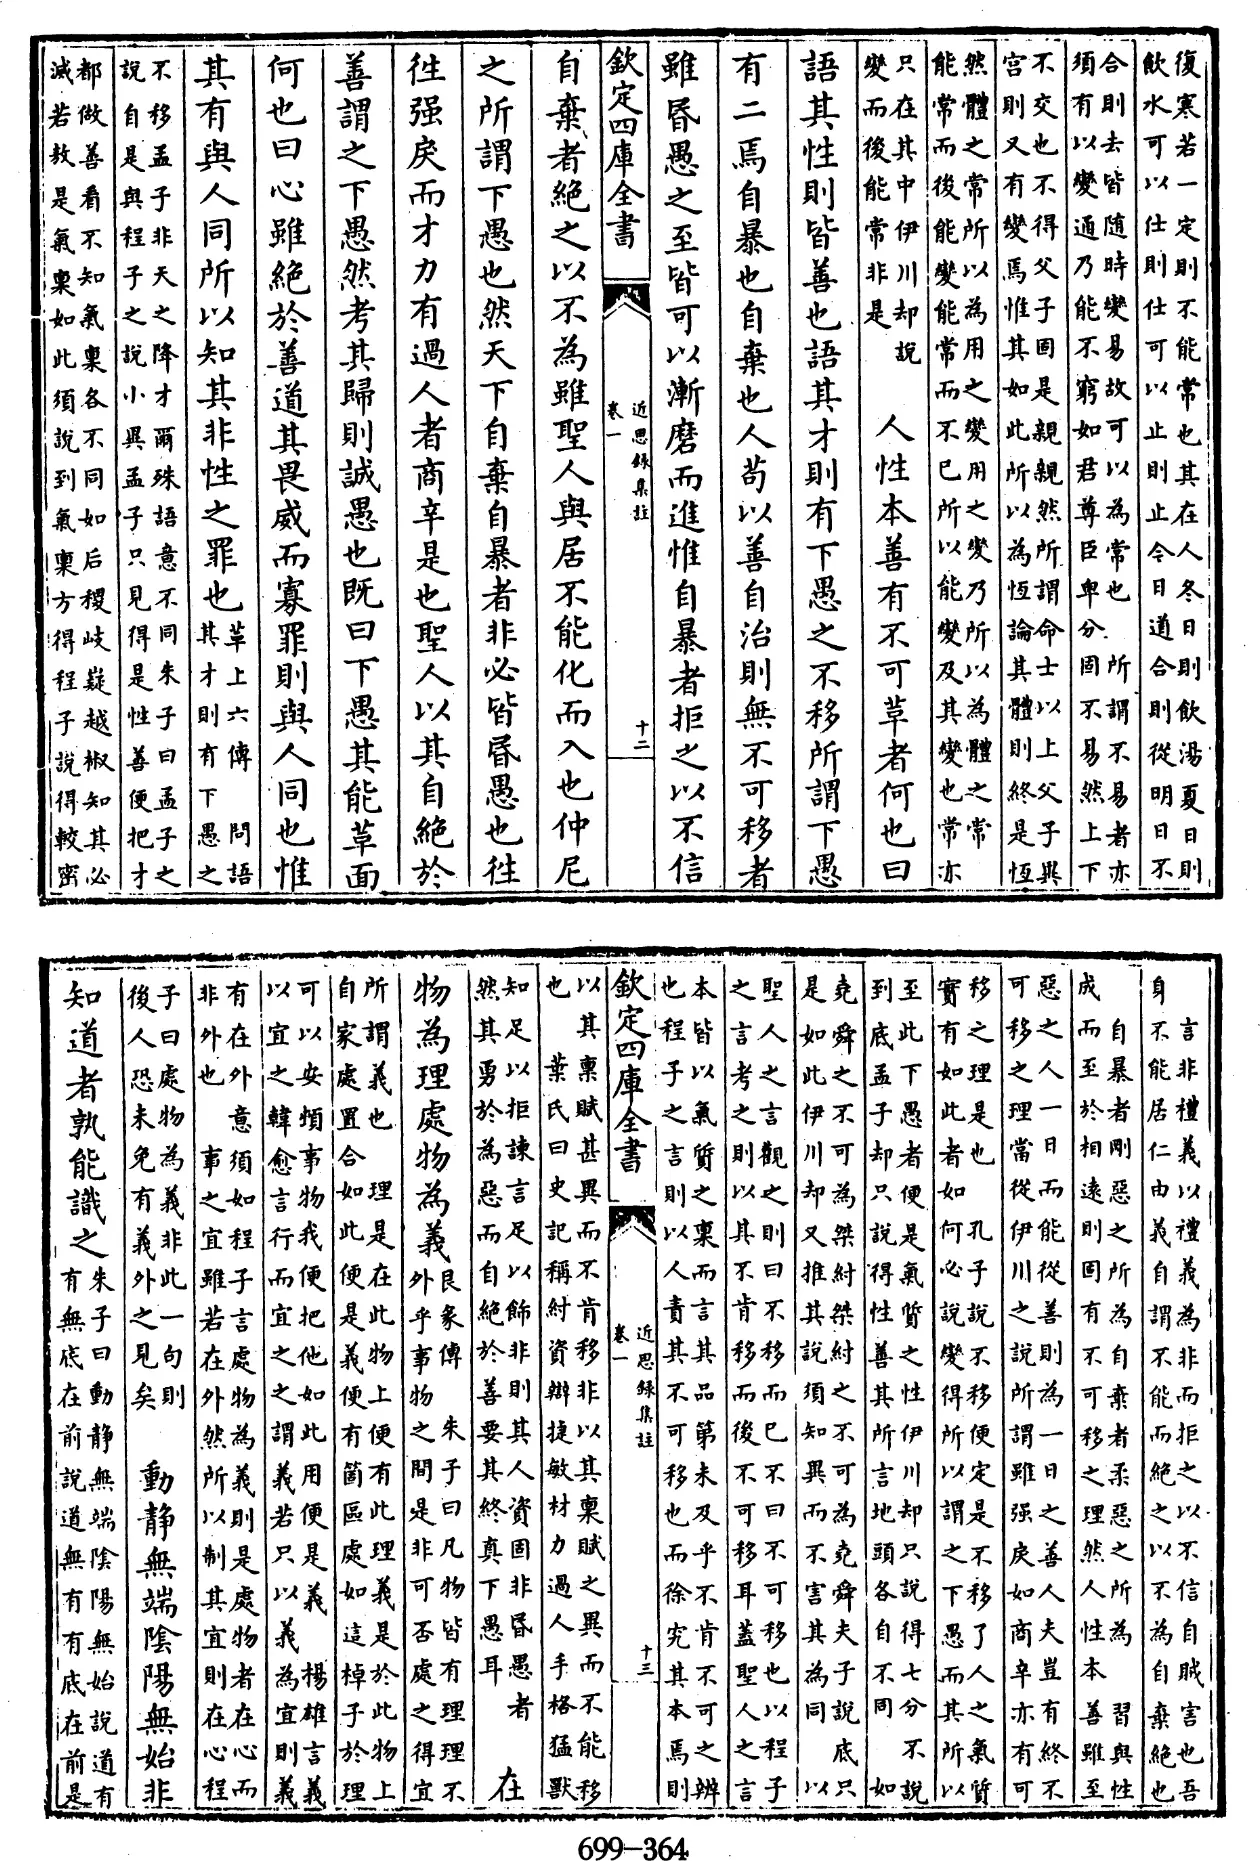 復寒若一定則不能常也其在人冬日則飲湯夏日則
飲水可以仕則仕可以止則止今日道合則從明日不
合則去皆隨時變易故可以為常也 所謂不易者亦
須有以變通乃能不窮如君尊臣卑分固不易然上下
不交也不得父子固是親親然所謂命士以上父子異
宫則又有變焉惟其如此所以為恆論其體則終是恆
然體之常所以為用之變用之變乃所以為體之常
能常而後能變能常而不已所以能變及其變也常亦
只在其中伊川却說
變而後能常非是
人性本善有不可革者何也曰
語其性則皆善也語其才則有下愚之不移所謂下愚
有二焉自暴也自棄也人苟以善自治則無不可移者
雖昏愚之至皆可以漸磨而進惟自暴者拒之以不信
欽定四庫全書
近思録集註
卷一
十二
自棄者絶之以不為雖聖人與居不能化而入也仲尼
之所謂下愚也然天下自棄自暴者非必皆昏愚也往
往强戾而才力有過人者商辛是也聖人以其自絶於
善謂之下愚然考其歸則誠愚也既曰下愚其能革面
何也曰心雖絶於善道其畏威而寡罪則與人同也惟
其有與人同所以知其非性之罪也
革上六傳 問語
其才則有下愚之
不移孟子非天之降才爾殊語意不同朱子曰孟子之
說自是與程子之說小異孟子只見得是性善便把才
都做善看不知氣稟各不同如后稷岐嶷越椒知其必
滅若敖是氣稟如此須說到氣稟方得程子說得較密
言非禮義以禮義為非而拒之以不信自賊害也吾
身不能居仁由義自謂不能而絶之以不為自棄絶也
自暴者剛惡之所為自棄者柔惡之所為 習與性
成而至於相遠則固有不可移之理然人性本善雖至
惡之人一日而能從善則為一日之善人夫豈有終不
可移之理當從伊川之說所謂雖强戾如商辛亦有可
移之理是也 孔子說不移便定是不移了人之氣質
實有如此者如何必說變得所以謂之下愚而其所以
至此下愚者便是氣質之性伊川却只說得七分不說
到底孟子却只說得性善其所言地頭各自不同 如
堯舜之不可為桀紂桀紂之不可為堯舜夫子說底只
是如此伊川却又推其說須知異而不害其為同 以
聖人之言觀之則曰不移而已不曰不可移也以程子
之言考之則以其不肯移而後不可移耳蓋聖人之言
本皆以氣質之稟而言其品第未及乎不肯不可之辨
也程子之言則以人責其不可移也而徐究其本焉則
欽定四庫全書
近思録集註
卷一
十三
以其稟賦甚異而不肯移非以其稟賦之異而不能移
也 葉氏曰史記稱紂資辨捷敏材力過人手格猛獸
知足以拒諫言足以飾非則其人資固非昏愚者
然其勇於為惡而自絶於善要其終真下愚耳
在
物為理處物為義
艮彖傳 朱子曰凡物皆有理理不
外乎事物之間是非可否處之得宜
所謂義也 理是在此物上便有此理義是於此物上
自家處置合如此便是義便有箇區處如這棹子於理
可以安頓事物我便把他如此用便是義 楊雄言義
以宜之韓愈言行而宜之之謂義若只以義為宜則義
有在外意須如程子言處物為義則是處物者在心而
非外也 事之宜雖若在外然所以制其宜則在心程
子曰處物為義非此一句則
後人恐未免有義外之見矣
動靜無端陰陽無始非
知道者孰能識之
朱子曰動靜無端陰陽無始說道有
有無底在前說道無有有底在前是
699-364